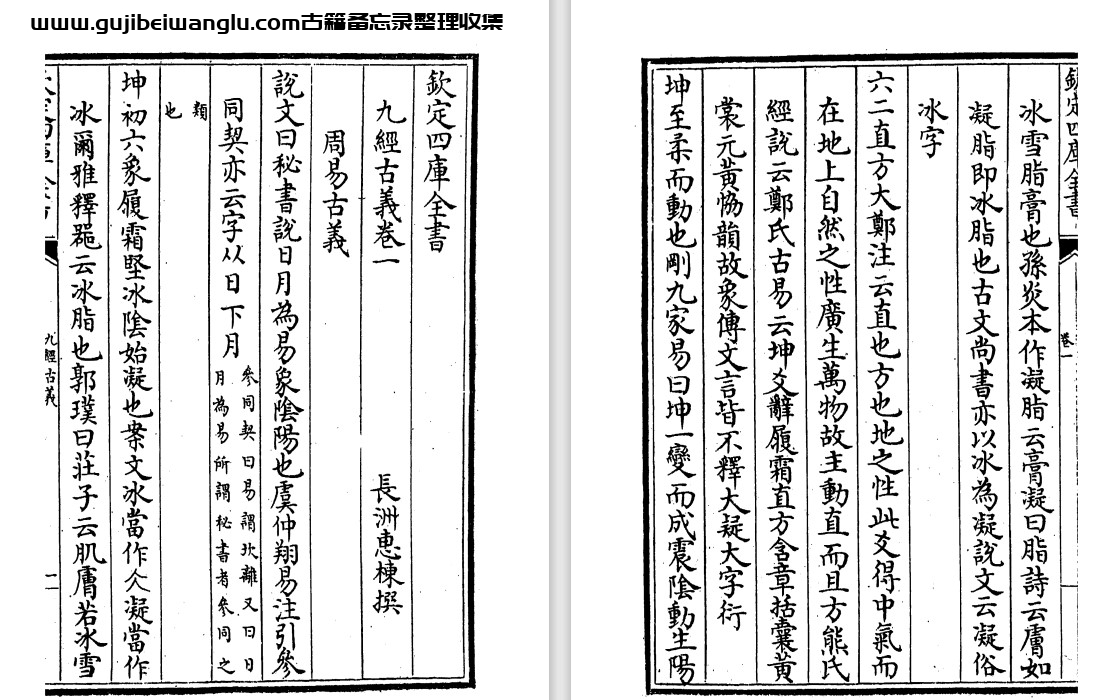 www.gujibeiwanglu.com古籍备忘录整理收集
欽定四庫全書
九經古義卷一
長洲惠棟撰
周易古義
說文曰秘書說日月為易象陰陽也虞仲翔易注引參
同契亦云字从日下月
參同契曰易謂坎離又曰日
月為易所謂秘書者參同之
類
也
坤初六象履霜堅冰陰始凝也案文冰當作仌凝當作
冰爾雅釋器云冰脂也郭璞曰莊子云肌膚若冰雪
九經古義
二
欽定四庫全書
卷一
冰雪脂膏也孫炎本作凝脂云膏凝曰脂詩云膚如
凝脂即冰脂也古文尚書亦以冰為凝說文云凝俗
冰字
六二直方大鄭注云直也方也地之性此爻得中氣而
在地上自然之性廣生萬物故主動直而且方熊氏
經說云鄭氏古易云坤爻辭履霜直方含章括囊黃
裳元黃恊韻故象傳文言皆不釋大疑大字衍
坤至柔而動也剛九家易曰坤一變而成震陰動生陽